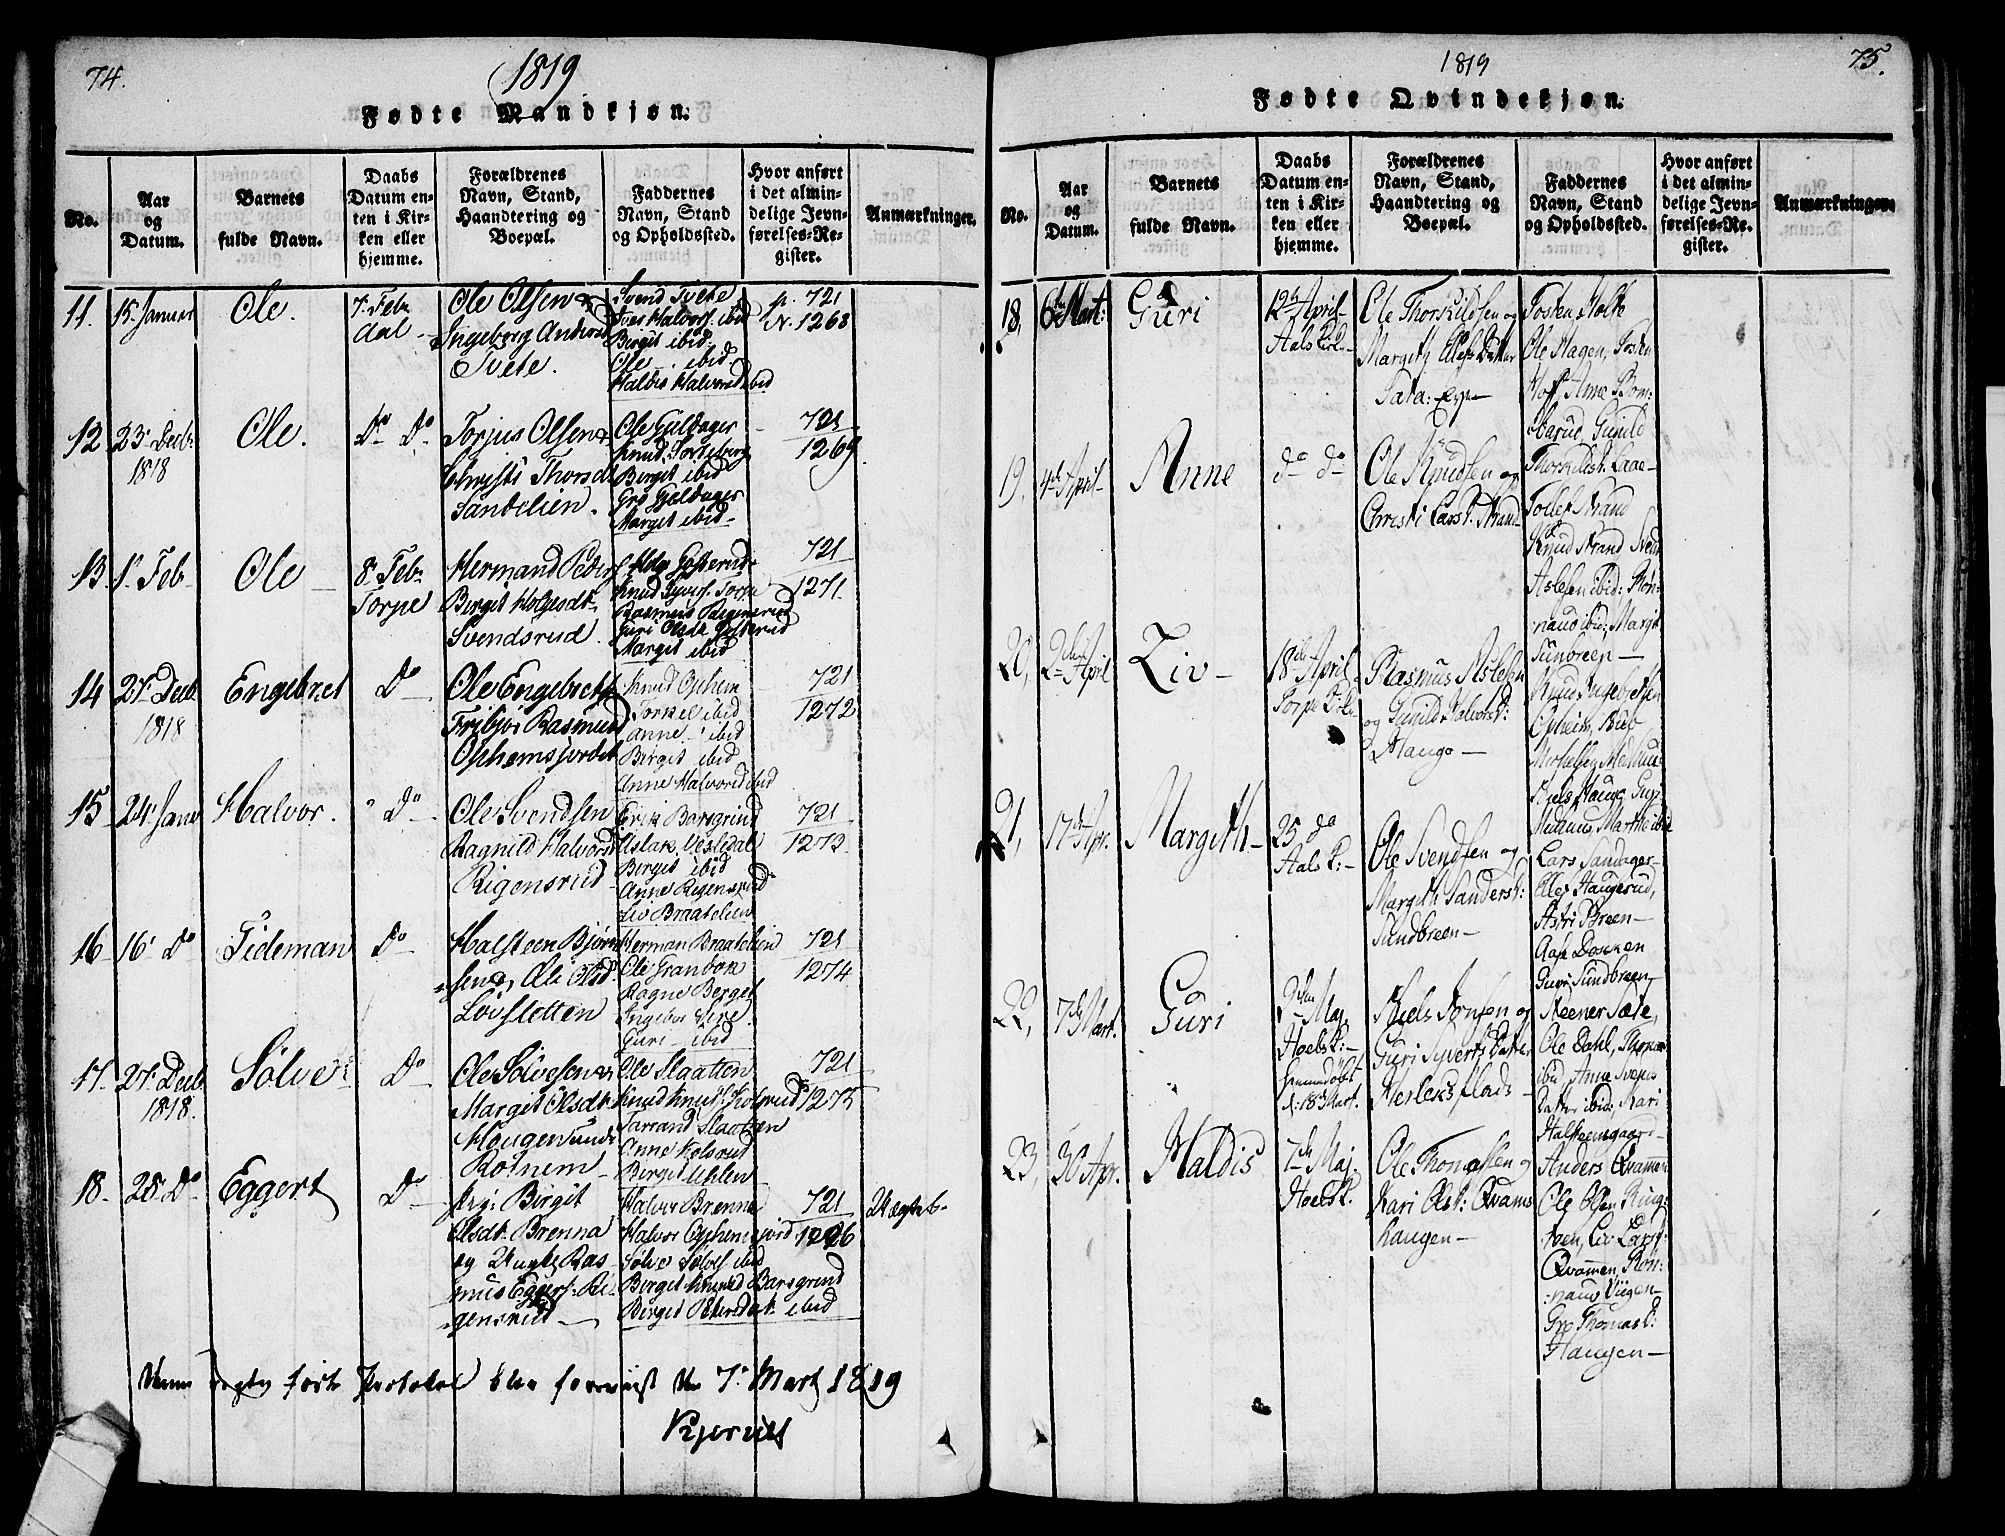 74.
1819
Fødte Mandkjøn.
No.
Aar og Datum.
Barnets fulde Navn.
Daabs Datum enten i Kirken eller hjemme.
Forældrenes Navn, Stand, Haandtering og Boepæl.
Faddernes Navn, Stand og Opholdssted.
Hvor anført i det almindelige Jevnførelses-Register.
Anmærkninger.
11.
15. Januar
Ole.
7. Febr.
Aal
Ole Olsen
Ingeborg Andersd
Tvete.
Svend Tvete
Halvors. ibid
Birgit ibid.
Ole ibid
Haldis Halvorsd ibid
p. 721
N. 1268
12
23. Decbr.
1818
Ole.
Do Do
Torjus Olsen
Christi Thorsd
Sandelien.
Ole Guldager
Knud
Berget ibid
Gro Guldager
Marget ibid
721
1269
13.
1. Feb
Ole
8. Febr
Torpe
Hermand Peders
Birgit Holgesdt.
Svendsrud.
Knud Syvers. Torpe
Guri Olsdt.
Marget ibid
721
1271.
14
27. Decb.
1818
Engebret
Do
Ole Engebrets
Rasmusd
Ophemsjordet
Knud Ophem
Torkel ibid
Anne ibid
Birgit ibid
Anne Halvorsd ibid
721
1272
15
24. Janv
Halvor.
Do
Ole Svendsen
Ragnild Halvorsd
Rigensrud
Erik Barsgrind
Aslak Vestledal
Berget ibid
Anne Regensrud
Liv Braatelien
721
1273
16
16. Do
Tideman
Do
Halsteen Bjørn
sen
Løvsletten
Herman Braatelien
Ole Granboke
Ragne Berget
Guri ibid
721
1274
17.
27. Decb
1818.
Sølve
Do
Ole Sølvesen
Marget Olsdt.
Haugen unde
Rotnem
Ole Slaatten
Knud Knuts. Kolsrud
Tarrand Slaatten
Anne Kolsrud
Birget Uhlen
721
1275
18.
28. Do
Eggert
Do
Pig: Birgit
Olsdt. Brenna
og Ungk. Ras-
mus Eggerts. Ri-
gensrud
Halvor Brenna
Halvor Ophemsjord
Sølve Sølves. ibid
Berget Knudsd Barsgrind
Birget Pedersdt. ibid
721
1276
Uægteb.
7. Mart 1819
Kjerulf
75.
1819
Fødte Qvindekjøn.
No.
Aar og Datum.
Barnets fulde Navn.
Daabs Datum enten i Kirken eller hjemme.
Forældrenes Navn, Stand, Haandtering og Boepæl.
Faddernes Navn, Stand og Opholdssted.
Hvor anført i det almindelige Jevnførelses-Register.
Anmærkninger.
18,
6te Mart:
Guri
12te April
Aals Kirke
Ole Thorkildsen og
Margith Datter
Tosten Holte
Ole Hagen, Tosten
Hoff, Anne
Gunild
19,
4de April
Anne
do do
Ole Knudsen og
Christi Larsd. Strand
Tollef Strand
Knud Strand Svend
Aslesen ibid: Røn-
naug ibid; Margit
Sundreen
20,
2den April
Liv
18de April
Torpe Kirke
Rasmus Aslesen
og Gunild Halvorsd:
Hauge
Knud Engebretsen
Opheim,
Niels Hauge Guri
Marthe ibid
21,
17de Apr.
Margith
25 do
Aals K:
Ole Svendsen og
Margith Sandersd:
Sundreen
Lars Sandager
Elles Haugerud,
Astri Breen
Dokken
Guri Sundbreen
22,
7de Mart.
Guri
2den Maj.
Hoels K:
hjemmedøbt
d: 18de Mart.
Niels Jonsen og
Guri Syverts Datter
Herleksplads
Steener Sæte,
Ole Dahl, Thomas
ibid, Anne Svens
Datter ibid, Kari
Halsteensgaard
23,
30 Apr.
Haldis
7de Maj.
Hoels K.
Ole Thomassen og
Kari Olsd: Qvams
haugen
Anders Qvammen
Ole Olsen Ring-
Liv Larsd.
Qvammen, Røn:
naug Viigen
Gro Thomasd:
Haugen